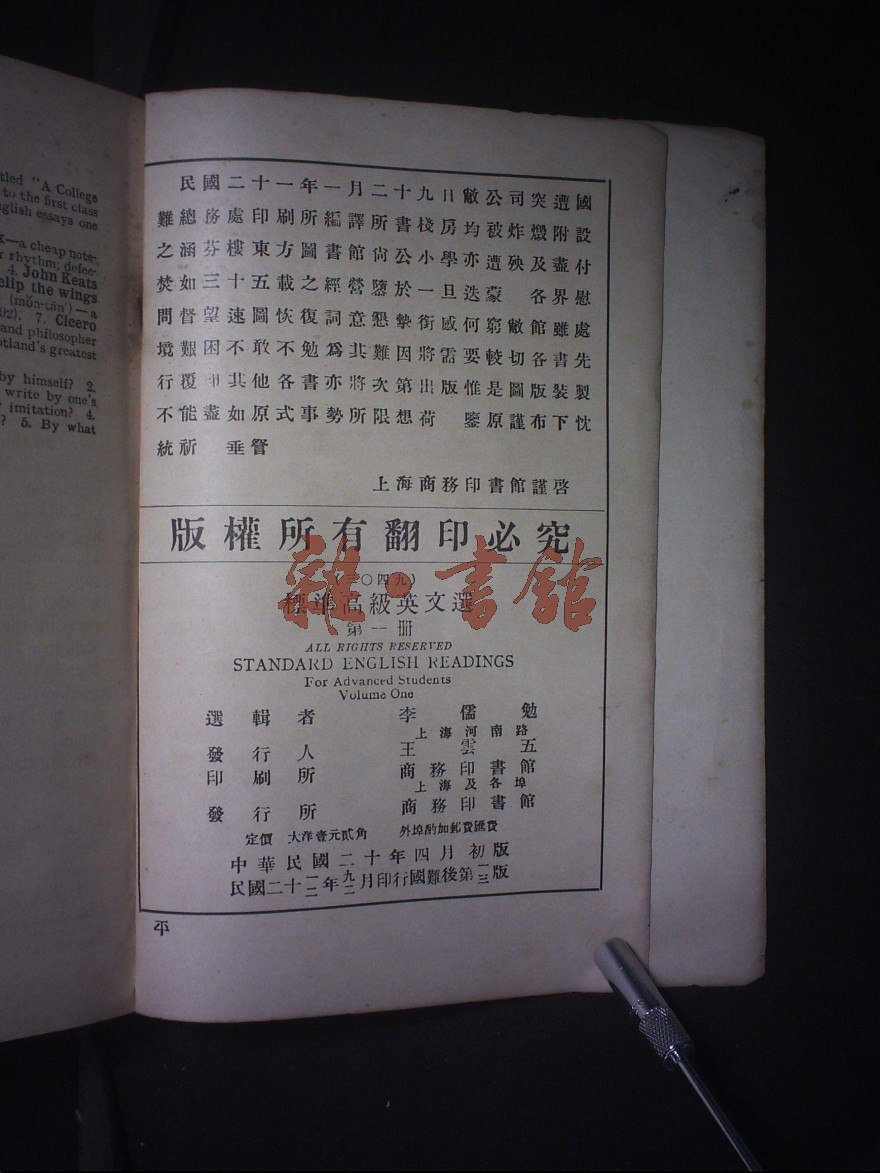 tled "A College
to the first class
glish essays one
k—a cheap note-
r rhythm; defec-
4. John Keats
clip the wings
(mŏn-tān′)—a
92). 7. Cicero
and philosopher
otland's greatest
by himself? 2.
write by one's
imitation? 4.
? 5. By what
民國二十一年一月二十九日敝公司突遭國
難總務處印刷所編譯所書棧房均被炸燬附設
之涵芬樓東方圖書館尙公小學亦遭殃及盡付
焚如三十五載之經營墮於一旦迭蒙 各界慰
問督望速圖恢復詞意懇摯銜感何窮敝館雖處
境艱困不敢不勉爲其難因將需要較切各書先
行覆印其他各書亦將次第出版惟是圖版裝製
不能盡如原式事勢所限想荷 鑒原謹布下忱
統祈 垂詧
上海商務印書館謹啓
版權所有翻印必究
(三〇四九)
標準高級英文選
第一册
ALL RIGHTS RESERVED
STANDARD ENGLISH READINGS
For Advanced Students
Volume One
選輯者 李儒勉
上海河南路
發行人 王雲五
印刷所 商務印書館
上海及各埠
發行所 商務印書館
定價 大洋壹元貳角 外埠酌加郵費匯費
中華民國二十年四月初版
民國二十一二年九二月印行國難後第一三版
平
雜·書館